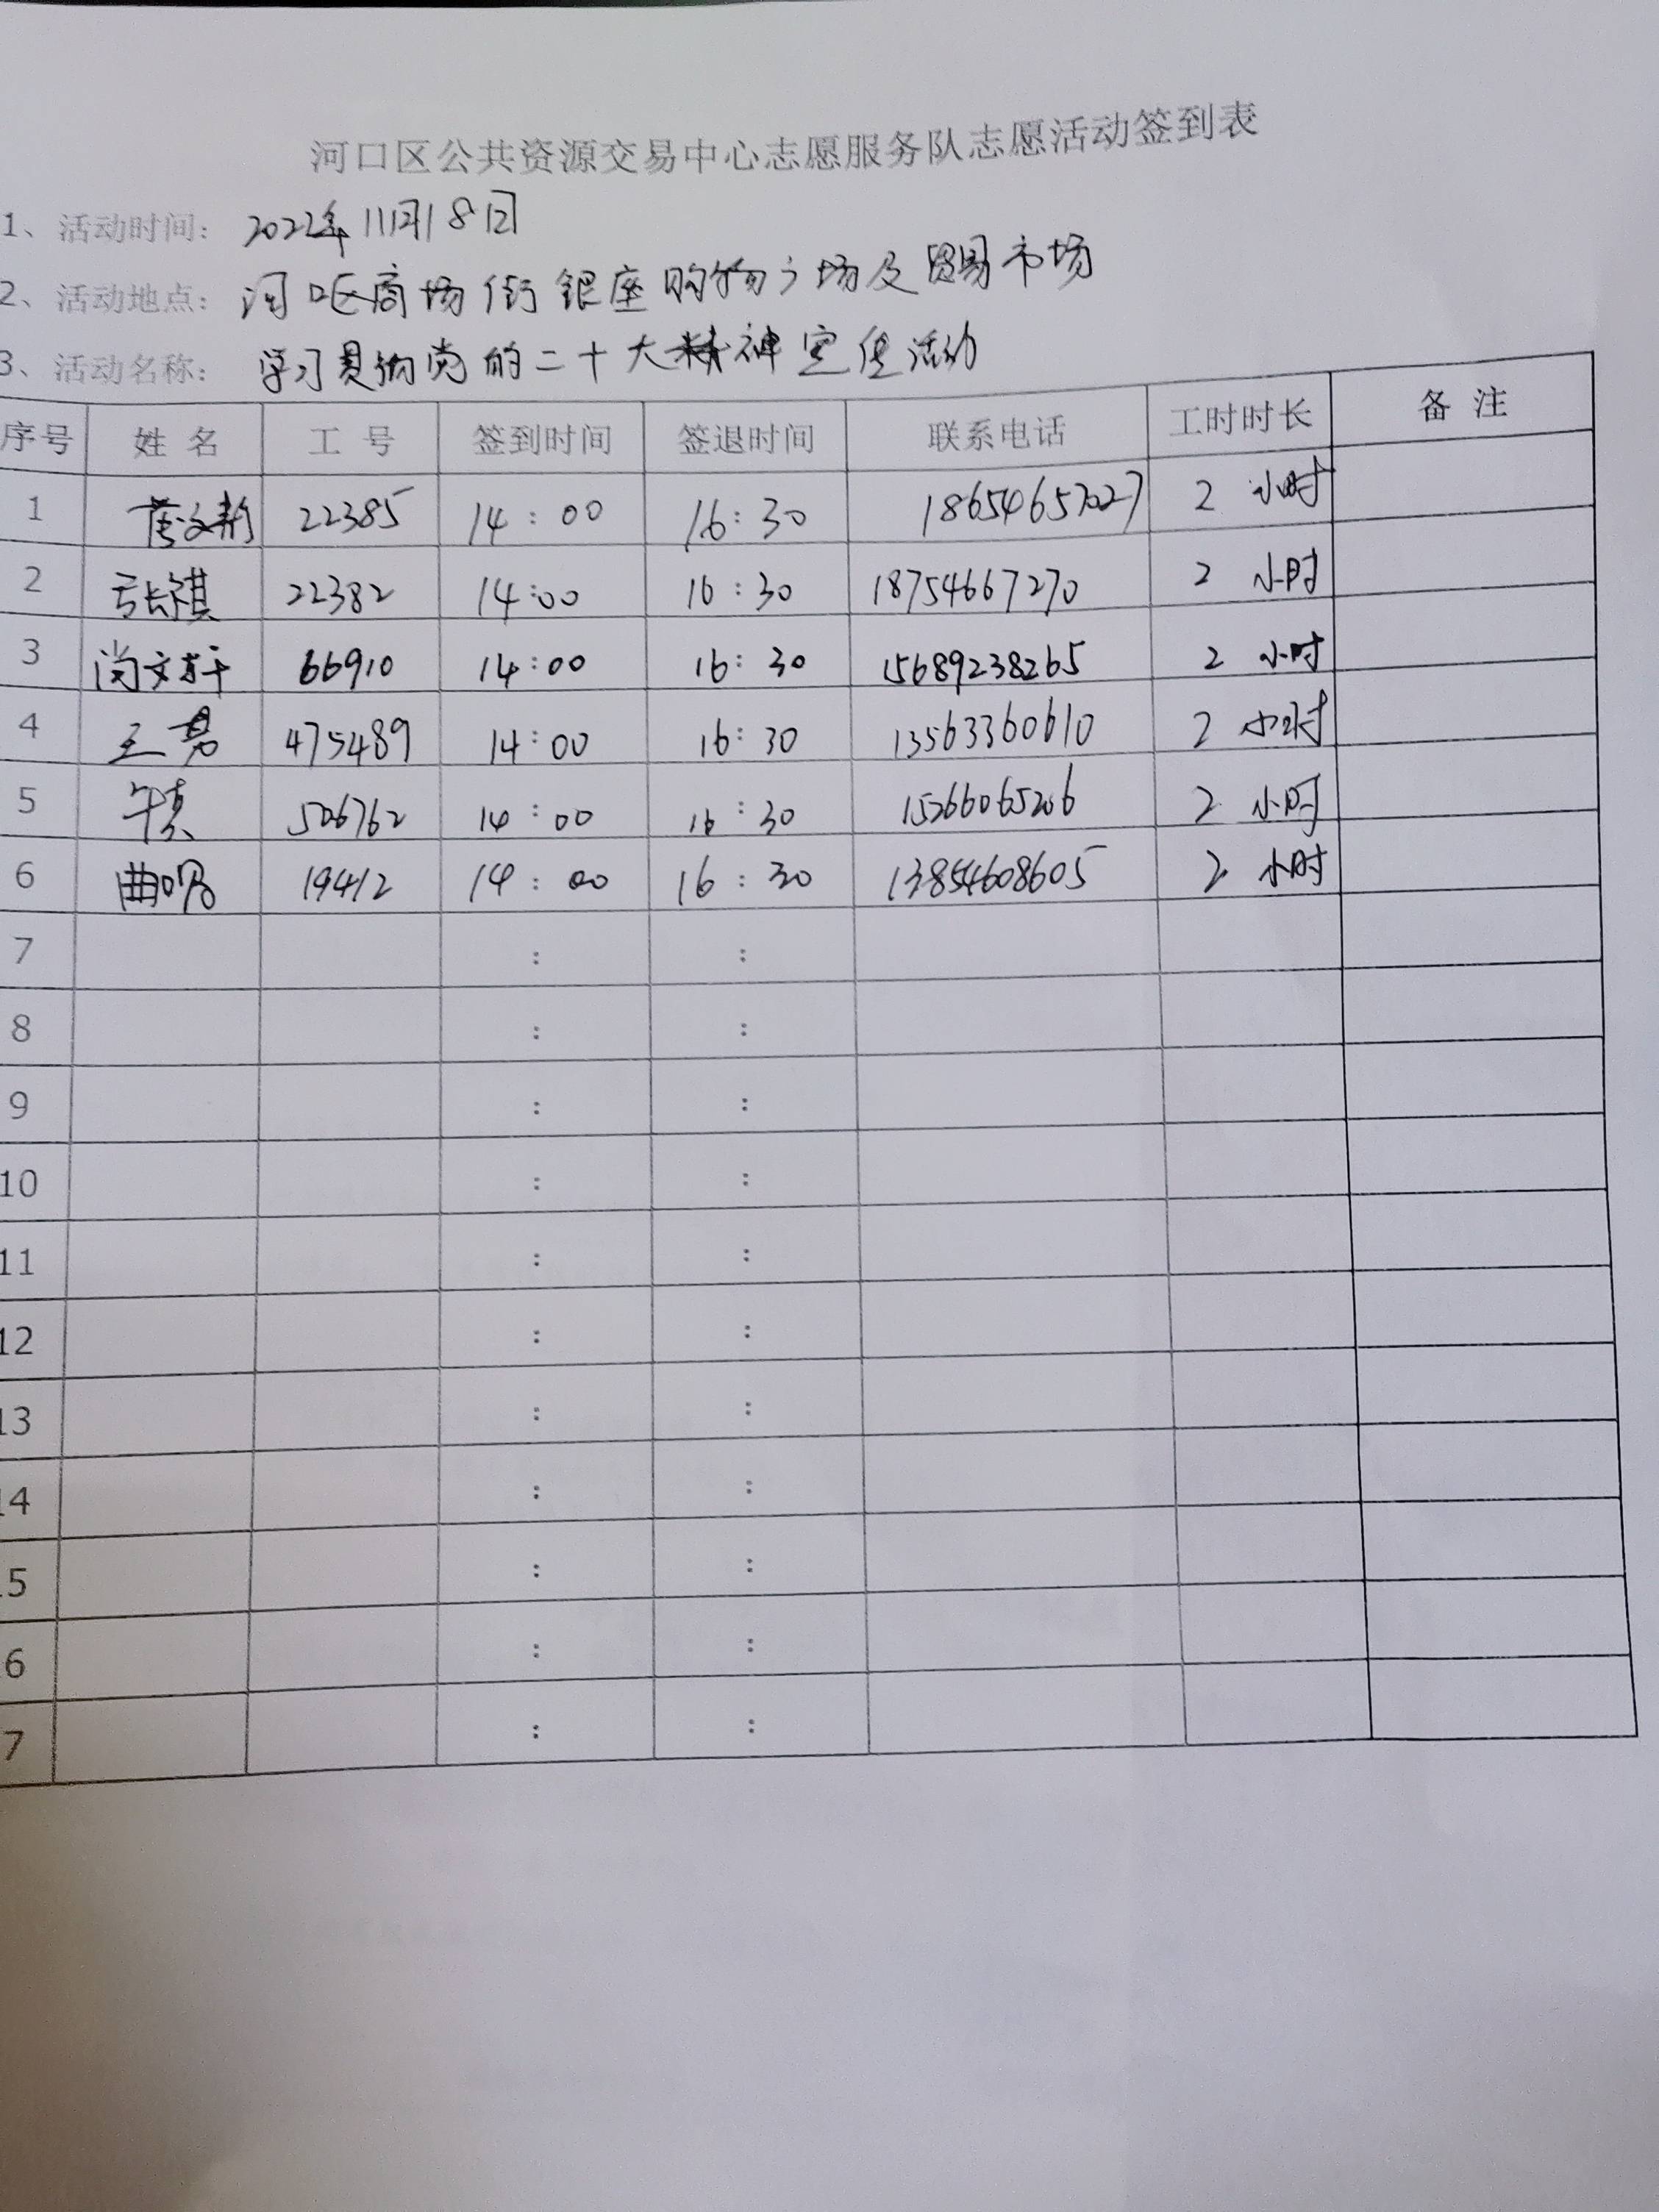 河口区公共资源交易中心志愿服务队志愿活动签到表
1、活动时间： 2022年11月18日
2、活动地点： 河口区商场街银座购物广场及贸易市场
3、活动名称： 学习贯彻党的二十大精神宣传活动
序号 姓名 工号 签到时间 签退时间 联系电话 工时时长 备注
1 22385 14：00 16：30 18654657027 2 小时
2 张祺 22382 14：00 16：30 18754667270 2 小时
3 尚文轩 66910 14：00 16：30 15689238265 2 小时
4 王勇 475489 14：00 16：30 13563360610 2 小时
5 506762 14：00 16：30 15266065206 2 小时
6 19412 14：00 16：30 13854608605 2 小时
7 ： ：
8 ： ：
9 ： ：
10 ： ：
11 ： ：
12 ： ：
13 ： ：
14 ： ：
15 ： ：
6 ： ：
7 ： ：